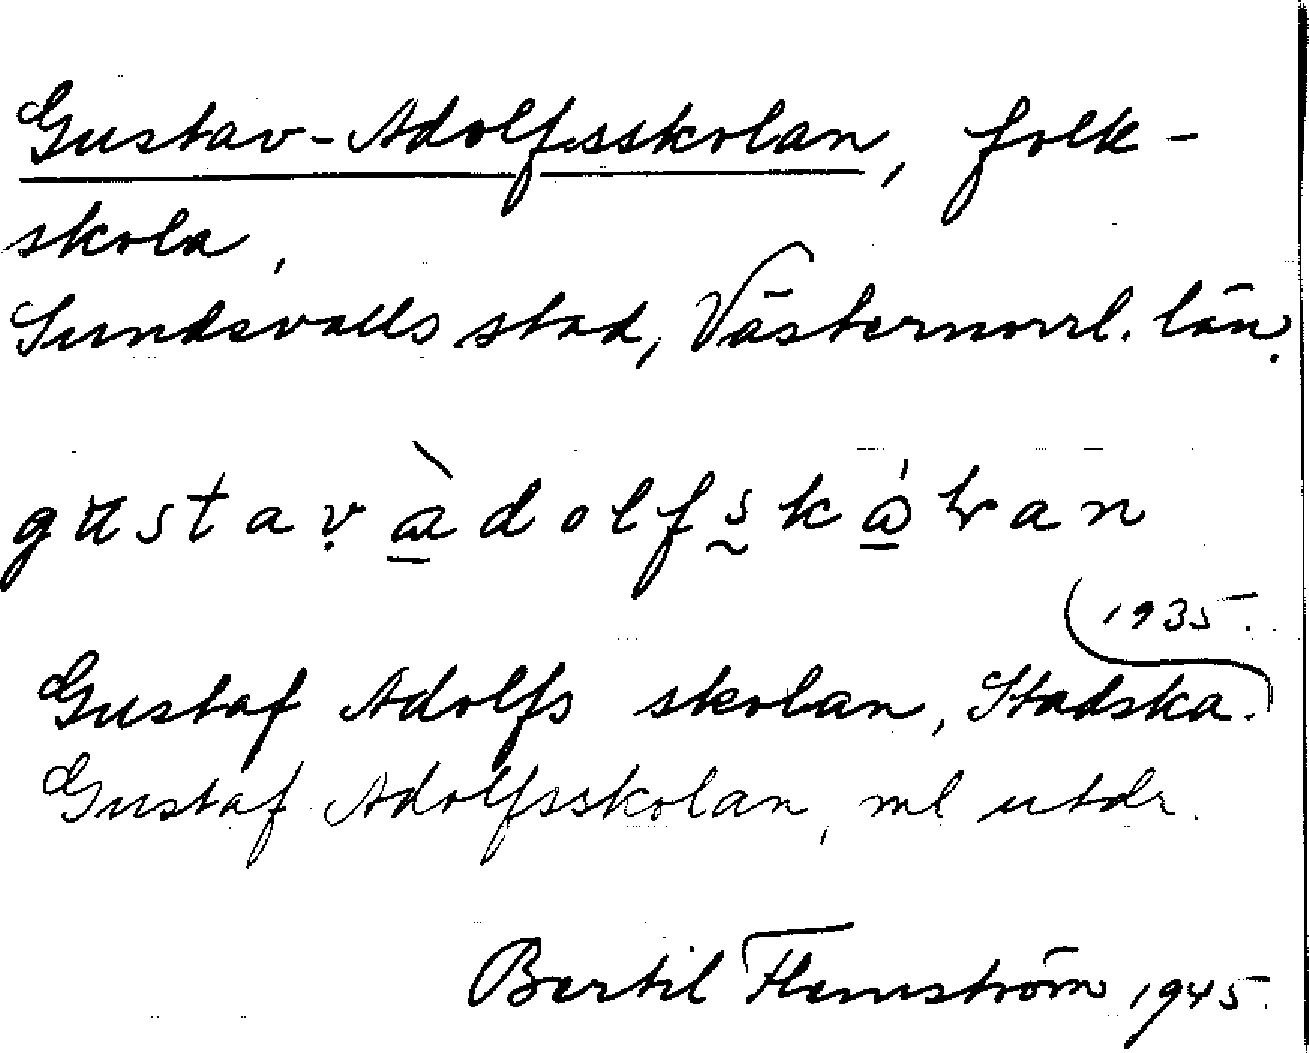 Gustav-Adolfsskolan, folk-
skola,
Sundsvalls stad, Västernorrl. län.
gustavàdolfskǻlan
1935.
Gustaf Adolfs skolan, Stadska.
Gustaf Adolfsskolan, ml utdr.
Bertil Flemström 1945.